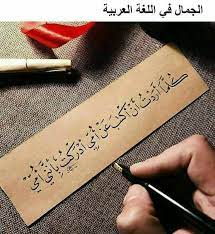 الجمال في اللغة العربية
كلما أردت أن أكتب عن أمي أدركت بأنني أمي